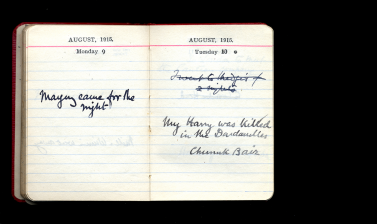 AUGUST, 1915.
Monday 9
came for the
night
AUGUST, 1915.
Tuesday 10
I went to
a night
My Harry was killed
in the Dardanelles
Chunuk Bair